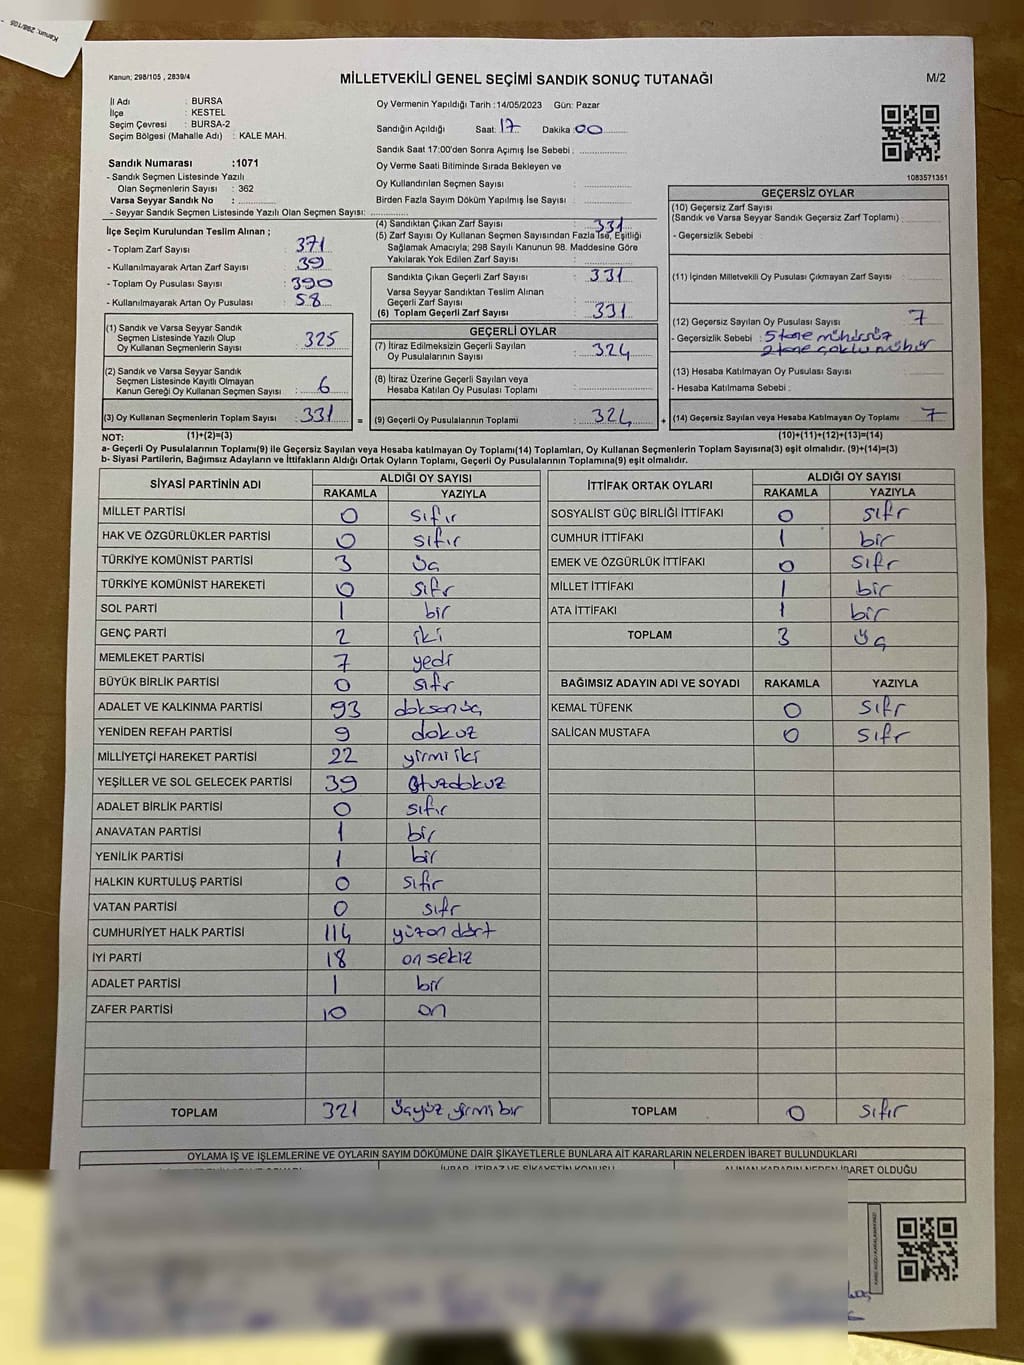 Kanun: 298/105
Kanun; 298/105 , 2839/4
MİLLETVEKİLİ GENEL SEÇİMİ SANDIK SONUÇ TUTANAĞI
M/2
İl Adı : BURSA
İlçe : KESTEL
Seçim Çevresi : BURSA-2
Seçim Bölgesi (Mahalle Adı) : KALE MAH.
Sandık Numarası :1071
- Sandık Seçmen Listesinde Yazılı
Olan Seçmenlerin Sayısı : 362
Varsa Seyyar Sandık No :
- Seyyar Sandık Seçmen Listesinde Yazılı Olan Seçmen Sayısı:
Oy Vermenin Yapıldığı Tarih :14/05/2023 Gün: Pazar
Sandığın Açıldığı Saat: 17 Dakika 00
Sandık Saat 17:00'den Sonra Açımış İse Sebebi :
Oy Verme Saati Bitiminde Sırada Bekleyen ve
Oy Kullandırılan Seçmen Sayısı :
Birden Fazla Sayım Döküm Yapılmış İse Sayısı :
1083571351
İlçe Seçim Kurulundan Teslim Alınan ;
- Toplam Zarf Sayısı : 371
- Kullanılmayarak Artan Zarf Sayısı : 39
- Toplam Oy Pusulası Sayısı : 390
- Kullanılmayarak Artan Oy Pusulası : 58
(1) Sandık ve Varsa Seyyar Sandık
Seçmen Listesinde Yazılı Olup
Oy Kullanan Seçmenlerin Sayısı : 325
(2) Sandık ve Varsa Seyyar Sandık
Seçmen Listesinde Kayıtlı Olmayan
Kanun Gereği Oy Kullanan Seçmen Sayısı : 6
(3) Oy Kullanan Seçmenlerin Toplam Sayısı : 331 =
(4) Sandıktan Çıkan Zarf Sayısı : 331
(5) Zarf Sayısı Oy Kullanan Seçmen Sayısından Fazla İse, Eşitliği
Sağlamak Amacıyla; 298 Sayılı Kanunun 98. Maddesine Göre
Yakılarak Yok Edilen Zarf Sayısı :
Sandıkta Çıkan Geçerli Zarf Sayısı : 331
Varsa Seyyar Sandıktan Teslim Alınan
Geçerli Zarf Sayısı :
(6) Toplam Geçerli Zarf Sayısı : 331
GEÇERLİ OYLAR
(7) İtiraz Edilmeksizin Geçerli Sayılan
Oy Pusulalarının Sayısı : 324
(8) İtiraz Üzerine Geçerli Sayılan veya
Hesaba Katılan Oy Pusulası Toplamı :
(9) Geçerli Oy Pusulalarının Toplamı : 324 +
GEÇERSİZ OYLAR
(10) Geçersiz Zarf Sayısı
(Sandık ve Varsa Seyyar Sandık Geçersiz Zarf Toplamı) :
- Geçersizlik Sebebi :
(11) İçinden Milletvekili Oy Pusulası Çıkmayan Zarf Sayısı :
(12) Geçersiz Sayılan Oy Pusulası Sayısı : 7
- Geçersizlik Sebebi : 5 tane mühürsüz
2 tane çoklu mühür
(13) Hesaba Katılmayan Oy Pusulası Sayısı :
- Hesaba Katılmama Sebebi :
(14) Geçersiz Sayılan veya Hesaba Katılmayan Oy Toplamı : 7
NOT: (1)+(2)=(3) (10)+(11)+(12)+(13)=(14)
a- Geçerli Oy Pusulalarının Toplamı(9) ile Geçersiz Sayılan veya Hesaba katılmayan Oy Toplamı(14) Toplamları, Oy Kullanan Seçmenlerin Toplam Sayısına(3) eşit olmalıdır. (9)+(14)=(3)
b- Siyasi Partilerin, Bağımsız Adayların ve İttifakların Aldığı Ortak Oyların Toplamı, Geçerli Oy Pusulalarının Toplamına(9) eşit olmalıdır.
SİYASİ PARTİNİN ADI ALDIĞI OY SAYISI
RAKAMLA YAZIYLA
MİLLET PARTİSİ 0 sıfır
HAK VE ÖZGÜRLÜKLER PARTİSİ 0 sıfır
TÜRKİYE KOMÜNİST PARTİSİ 3 üç
TÜRKİYE KOMÜNİST HAREKETİ 0 sıfr
SOL PARTİ 1 bir
GENÇ PARTİ 2 iki
MEMLEKET PARTİSİ 7 yedi
BÜYÜK BİRLİK PARTİSİ 0 sıfr
ADALET VE KALKINMA PARTİSİ 93 doksan üç
YENİDEN REFAH PARTİSİ 9 dokuz
MİLLİYETÇİ HAREKET PARTİSİ 22 yirmi iki
YEŞİLLER VE SOL GELECEK PARTİSİ 39 Otuzdokuz
ADALET BİRLİK PARTİSİ 0 sıfır
ANAVATAN PARTİSİ 1 bir
YENİLİK PARTİSİ 1 bir
HALKIN KURTULUŞ PARTİSİ 0 sıfır
VATAN PARTİSİ 0 sıfr
CUMHURİYET HALK PARTİSİ 114 yüzon dört
İYİ PARTİ 18 on sekiz
ADALET PARTİSİ 1 bir
ZAFER PARTİSİ 10 on
TOPLAM 321 üçyüz yirmi bir
İTTİFAK ORTAK OYLARI ALDIĞI OY SAYISI
RAKAMLA YAZIYLA
SOSYALİST GÜÇ BİRLİĞİ İTTİFAKI 0 sıfr
CUMHUR İTTİFAKI 1 bir
EMEK VE ÖZGÜRLÜK İTTİFAKI 0 sıfr
MİLLET İTTİFAKI 1 bir
ATA İTTİFAKI 1 bir
TOPLAM 3 üç
BAĞIMSIZ ADAYIN ADI VE SOYADI RAKAMLA YAZIYLA
KEMAL TÜFENK 0 sıfr
SALİCAN MUSTAFA 0 sıfr
TOPLAM 0 sıfır
OYLAMA İŞ VE İŞLEMLERİNE VE OYLARIN SAYIM DÖKÜMÜNE DAİR ŞİKAYETLERLE BUNLARA AİT KARARLARIN NELERDEN İBARET BULUNDUKLARI
İHBAR, İTİRAZ VE ŞİKAYETİN KONUSU
ALINAN KARARIN NEDEN İBARET OLDUĞU